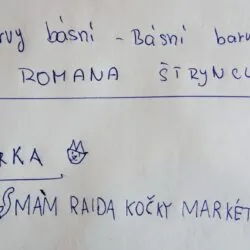 rvy básní - Básní barv
ROMANA ŠTRYNCL
RKA
MÁM RAIDA KOČKY MARKÉT